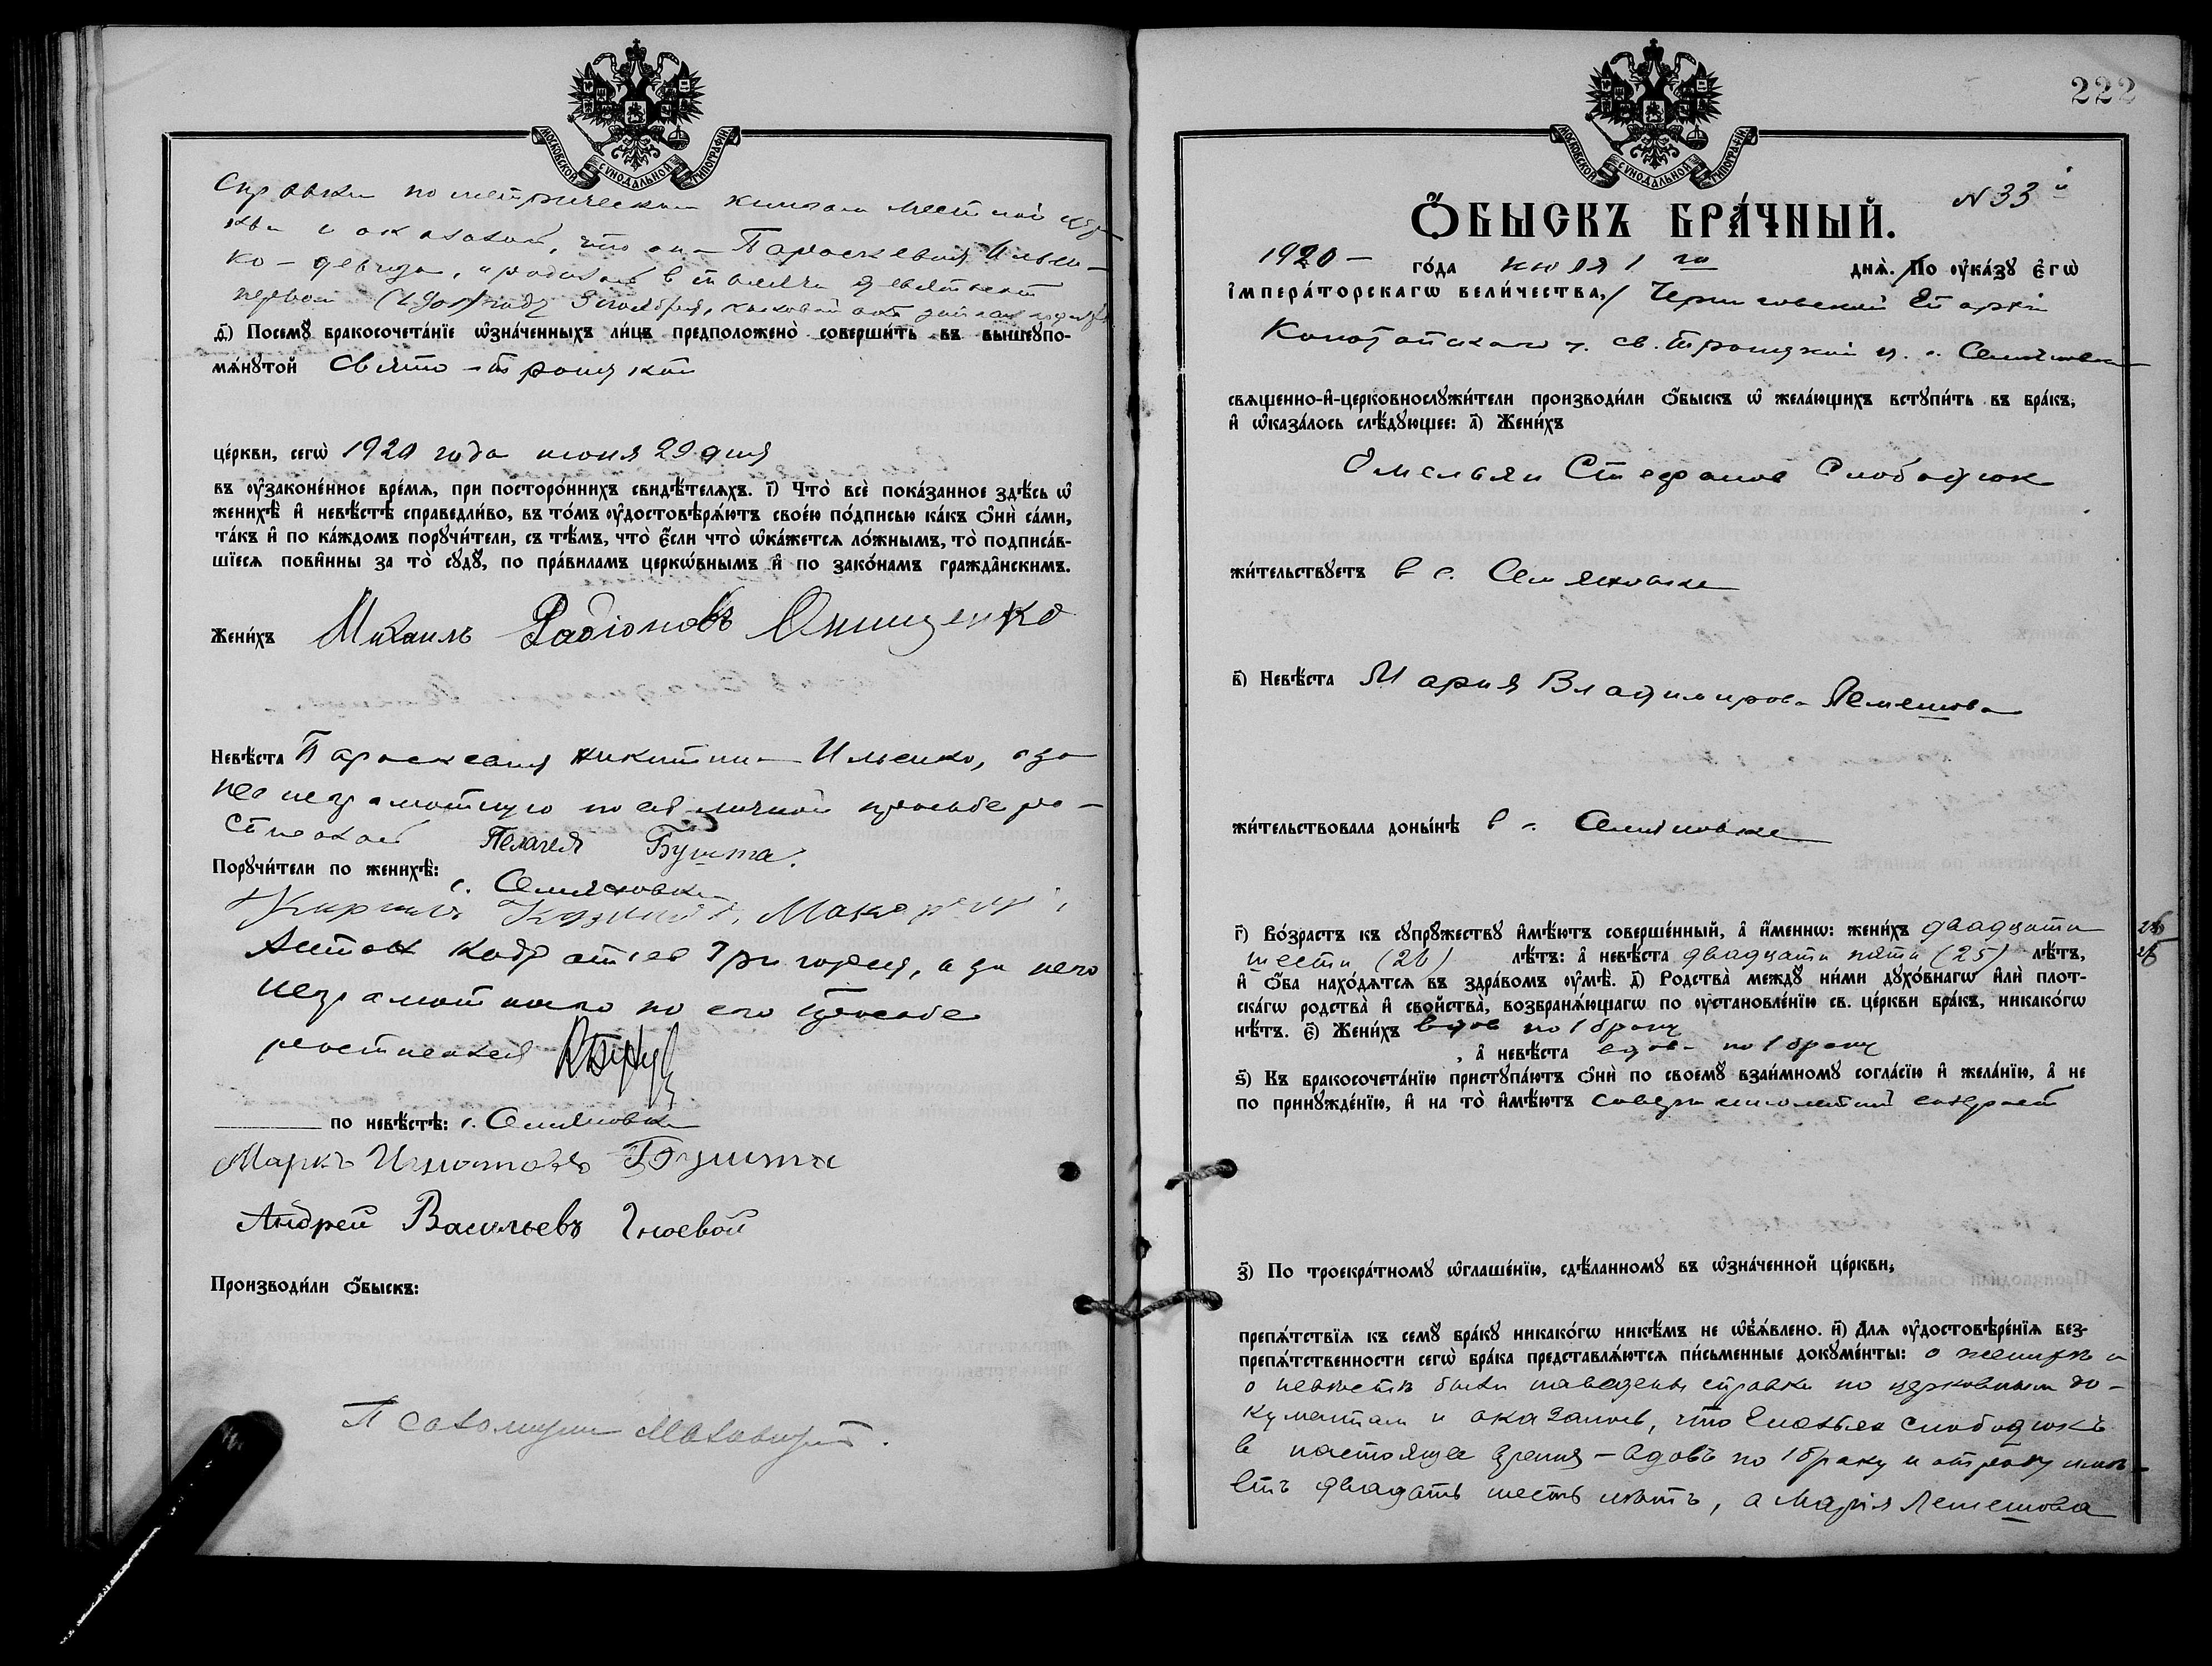 МОСКОВСКОЙ СУНОДАЛЬНОЙ ТИПОГРАФІИ
Справки по метрическим книгам местной цер-
кви и оказалось, что она Параскевия Ильен-
ко - девица, и родилась в тысяча девятьсот
первом (1901) году
д҃) Посемꙋ̀ бракосочета́нїе ѡ҆зна́ченныхъ ли́цъ предположено̀ соверши́ть въ вышеꙋпо-
мѧ́нꙋтой Свято-Троицкой
це́ркви, сегѡ̀ 1920 года июня 29 дня
въ ᲂу҆законе́нное вре́мѧ, при посторо́ннихъ свидѣ́телѧхъ. і҃) Что̀ всѐ пока́занное здѣ́сь ѡ҆
женихѣ̀ и҆ невѣ́стѣ справедли́во, въ то́мъ ᲂу҆достовѣрѧ́ютъ свое́ю по́дписью ка́къ ѻ҆нѝ са́ми,
та́къ и҆ по ка́ждомъ порꙋчи́тели, съ тѣ́мъ, что̀ є҆́сли что̀ ѡ҆ка́жетсѧ ло́жнымъ, то̀ подписа́в-
шїесѧ пови́нны за то̀ сꙋдꙋ̀, по пра́виламъ церкѡ́внымъ и҆ по зако́намъ гражда̂нскимъ.
Жени́хъ Михаилъ Радіоновъ Онищенко
Невѣ́ста Параскевия Никитина Ильенко, а за
нее неграмотную по ея личной просьбе ро-
списалась Пелагея Бушта.
Порꙋчи́тели по женихѣ̀: с. Семяновки
Кирилъ
Антон Кодратьев Григорея, а за него
неграмотного по его просьбе
росписался
по невѣ́стѣ: с. Семяновки
Маркъ Игнатовъ Бушта
Андрей Васильевъ Гноевой
Производи́ли ѻ҆́быскъ:
Псаломщик
222
МОСКОВСКОЙ СУНОДАЛЬНОЙ ТИПОГРАФІИ
N 33й
Ѻ҆́БЫСКЪ БРА́ЧНЫЙ.
1920 - го́да июля 1го днѧ̀. По ᲂу҆ка́зꙋ є҆гѡ̀
і҆мпера́торскагѡ вели́чества, Черниговской Епархіи
Конотопского у. св. Троицкой ц. с. Семяновки
свѧщенно-и҆-церковнослꙋжи́тели производи́ли ѻ҆́быскъ ѡ҆ жела́ющихъ встꙋпи́ть въ бра́къ,
и҆ ѡ҆каза́лось слѣ́дꙋющее: а҃) Жени́хъ
Омельян Стефанов Слободюк
жи́тельствꙋетъ в с. Семяновке
в҃) Невѣ́ста Мария Владимирова Лемешова
жи́тельствовала доны́нѣ в с. Семяновке
г҃) Во́зрастъ къ сꙋпрꙋ́жествꙋ и҆мѣ́ютъ соверше́нный, а҆ и҆́меннѡ: жени́хъ двадцати 26
шести (26) лѣ́тъ: а҆ невѣ́ста двадцати пяти (25) лѣ́тъ, 25
и҆ ѻ҆́ба нахо́дѧтсѧ въ здра́вомъ ᲂу҆мѣ̀. д҃) Родства̀ междꙋ̀ ни́ми дꙋхо́внагѡ и҆лѝ плот-
ска́гѡ родства̀ и҆ сво́йства̀, возбранѧ́ющагѡ по ᲂу҆становле́нїю св. це́ркви бра́къ, никако́гѡ
нѣ́тъ. є҃) Жени́хъ вдов по 1 браку
, а҆ невѣ́ста вдова по 1 браку
ѕ҃) Къ бракосочета́нїю пристꙋпа́ютъ ѻ҆нѝ по своемꙋ̀ взаи́мномꙋ согла́сїю и҆ жела́нїю, а҆ не
по принꙋжде́нїю, и҆ на то̀ и҆мѣ́ютъ совершеннолетний возраст
з҃) По троекра́тномꙋ ѡ҆глаше́нїю, сдѣ́ланномꙋ въ ѡ҆зна́ченной це́ркви,
препѧ́тствїѧ къ семꙋ̀ бра́кꙋ никако́гѡ никѣ́мъ не ѡ҆б̾ѧ́влено. и҃) Длѧ ᲂу҆достовѣре́нїѧ без-
препѧ́тственности сегѡ̀ бра́ка представлѧ́ютсѧ пи́сьменные докꙋме́нты: о женихѣ и
о невѣстѣ были наведены справки по церковным до-
кументам и оказалось, что Слободюкъ
в настоящее время - вдовъ по 1 браку и отроду имѣ-
етъ двадцать шесть лѣтъ, а Марія Лемешова